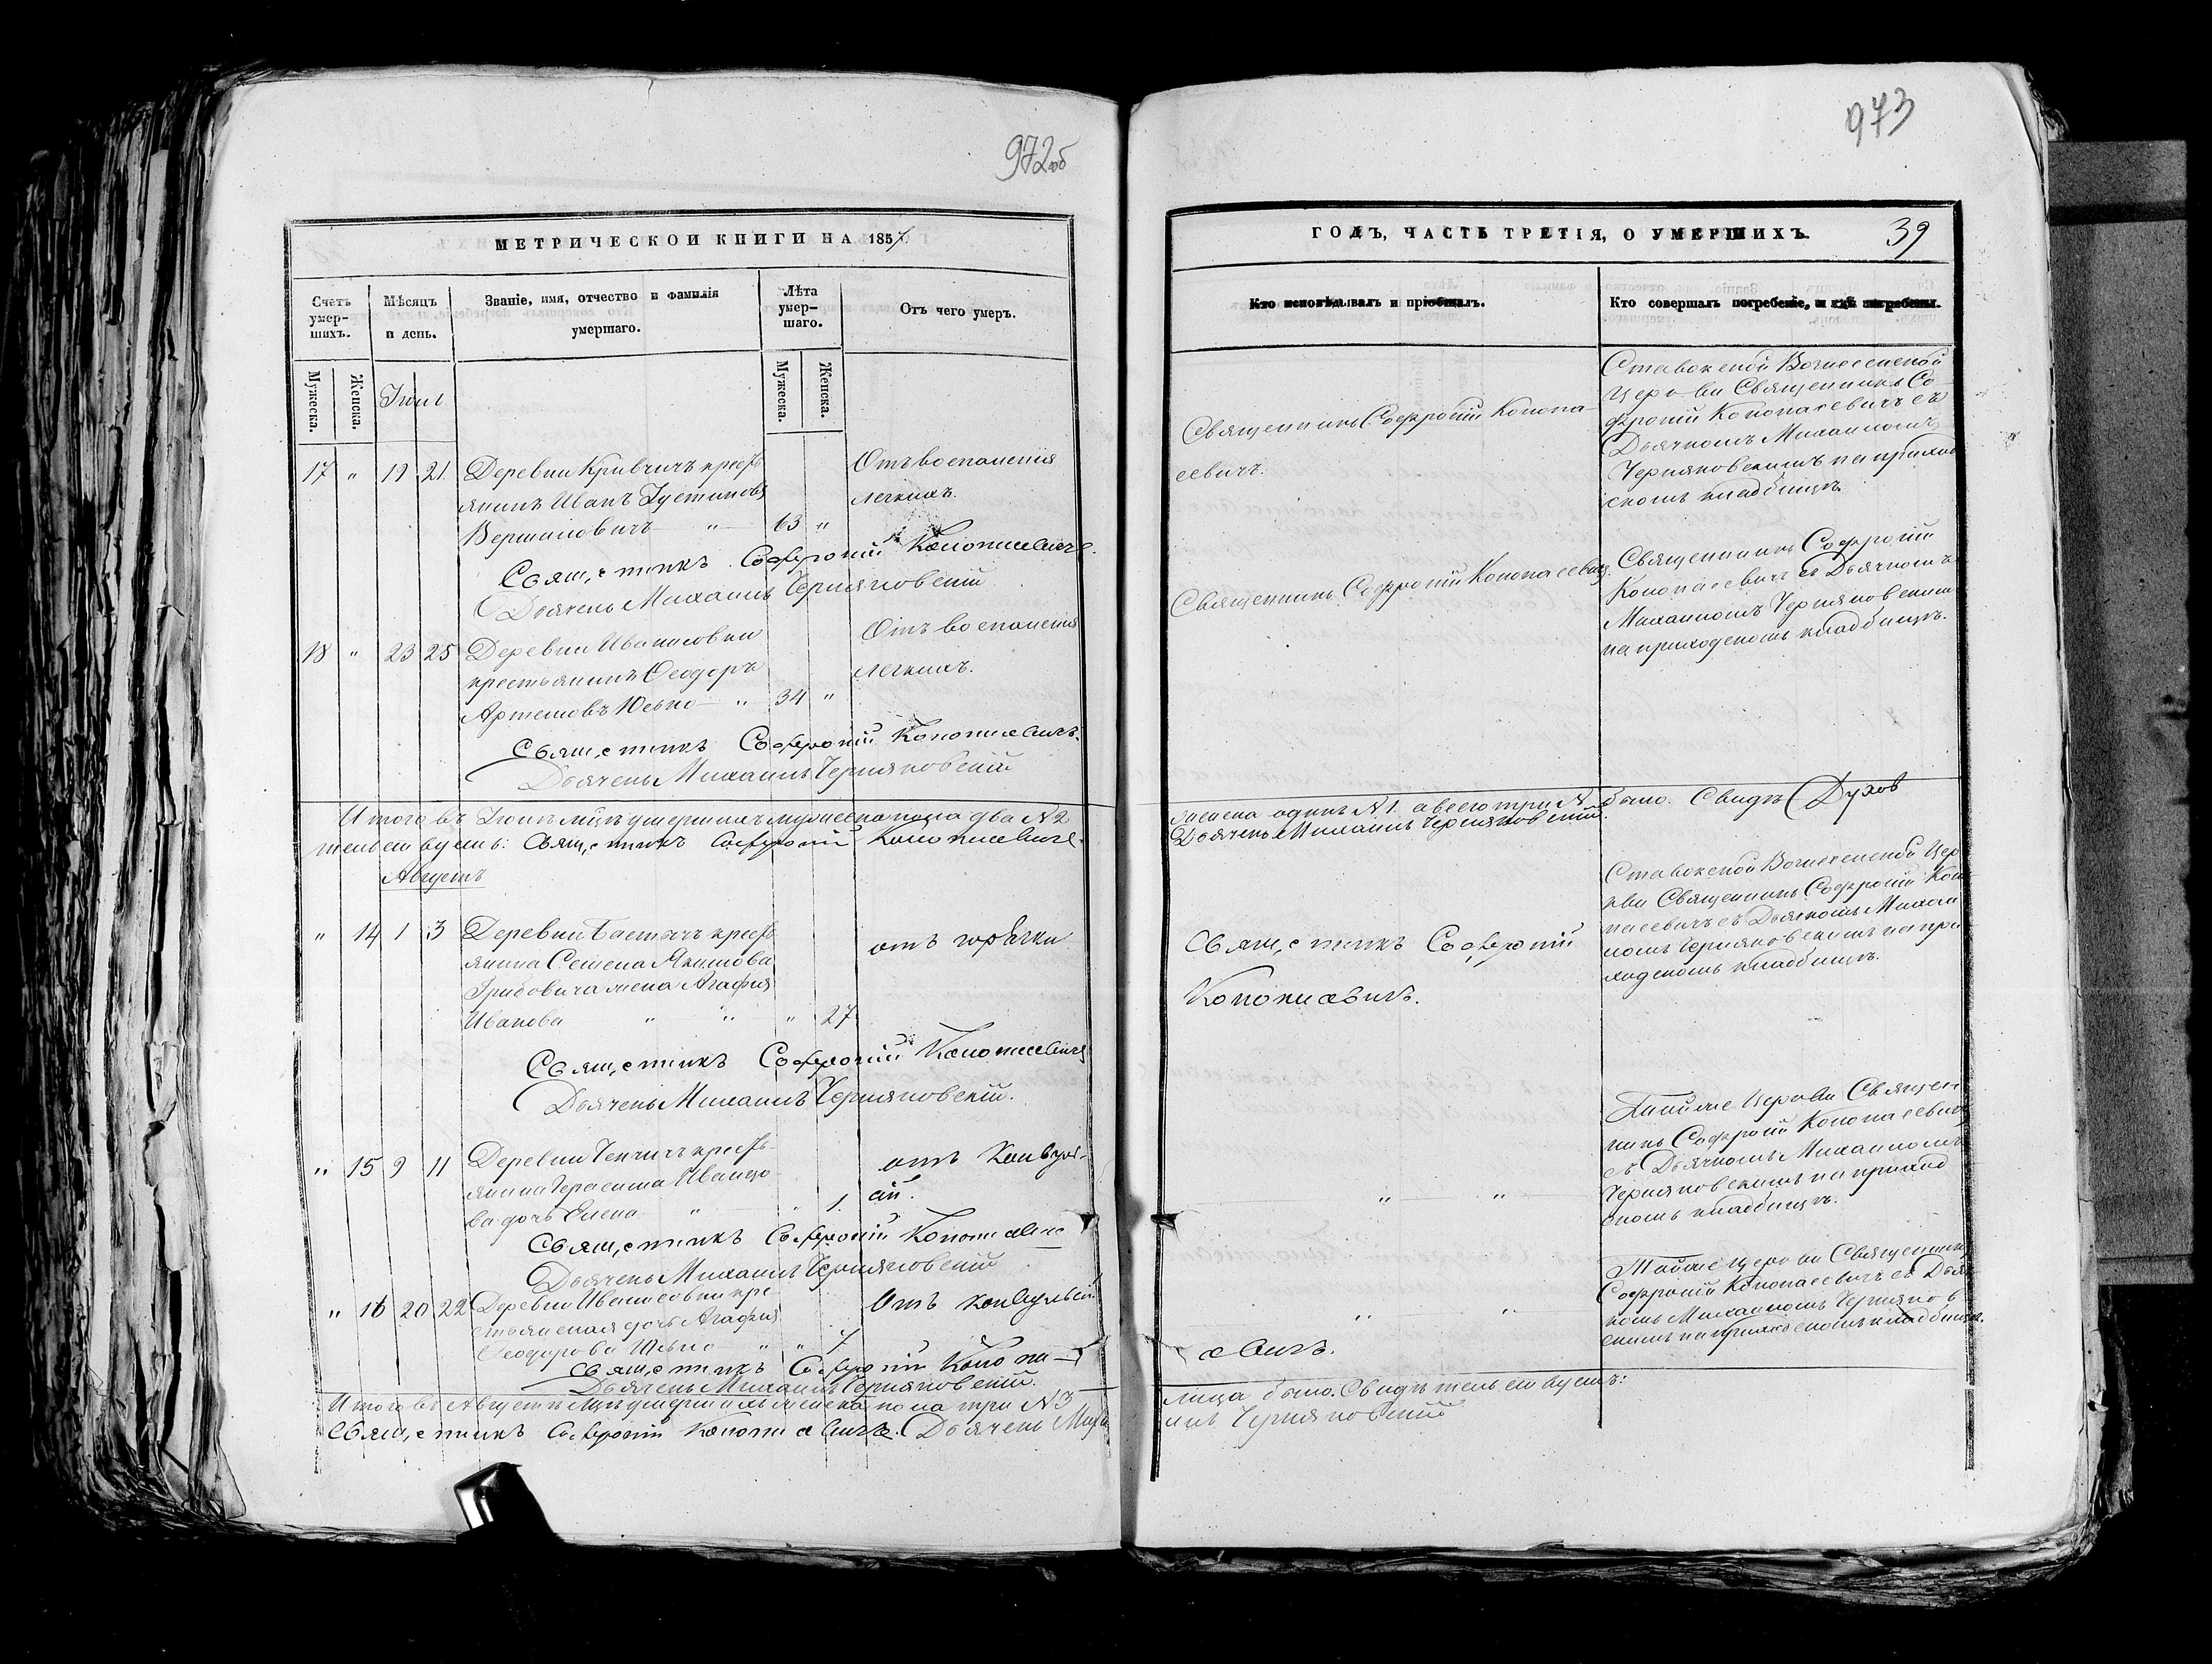 972об
МЕТРИЧЕСКОЙ КНИГИ НА 1857
Счетъ умер-шихъ.
Мѣсяцъ и день.
Званіе, имя, отчество и фамилія умершаго.
Лѣта умер-шаго.
Отъ чего умеръ.
Мужеска.
Женска.
Мужеска.
Женска.
17 " 19 21 Деревни Кривичъ кресть
янинъ Иванъ Іустиновъ
Вершиловичъ " 63 "
Отъ воспаленія
легкихъ.
Священникъ Софроній Конопасевичъ.
Дьячекъ Михаилъ Черняковскій
18 " 23 25 Деревни Иванисовки
крестьянинъ Ѳеодоръ
Артемовъ " 34 "
Отъ воспаленія
легкихъ.
Священникъ Софроній Конопасевичъ.
Дьячекъ Михаилъ Черняковскій
Итого въ мцѣ умершихъ мужеска пола два №2
Священникъ Софроній Конопасевичъ.
Августъ
" 14 1 3 Деревни кресть
янина Семена Якимова
Грибовича жена Агафия
Иванова " " " 27
отъ горячки
Священникъ Софроній Конопасевичъ
Дьячекъ Михаилъ Черняковскій.
" 15 9 11 Деревни кресть
янина Герасима
ва дочь Елена " " 1
отъ конвуль-
сій.
Священникъ Софроній Конопасевичъ
Дьячекъ Михаилъ Черняковскій
" 16 20 22 Деревни Иванисовки кре
стьянская дочь Агафия
Ѳеодорова " " 7
Отъ конвульсій
Священникъ Софроній Конопа-
Дьячекъ Михаилъ Черняковскій.
Итого въ Августѣ мцѣ умершихъ женска пола три №3
Священникъ Софроній Конопасевичъ. Дьячекъ Миха
973
ГОДЪ, ЧАСТЬ ТРЕТІЯ, О УМЕРШИХЪ.
39
Кто исповѣдывалъ и пріобщалъ.
Кто совершалъ погребеніе, и гдѣ погребены.
Священникъ Софроній Конопа-
севичъ.
Ставокской Вознесенской
церкви Священникъ Со-
фроній Конопасевичъ съ
Дьячкомъ Михаиломъ
Черняковскимъ на приход
скомъ кладбищѣ.
Священникъ Софроній Конопасевичъ.
Священникъ Софроній
Конопасевичъ съ Дьячкомъ
Михаиломъ Черняковскимъ
на приходскомъ кладбищѣ.
женска одинъ №1. а всего три было. Свидѣ Духов
Дьячекъ Михаилъ Черняковскій.
Священникъ Софроній
Конопасевичъ.
Ставокской Вознесенской Цер
кви Священникъ Софроній Коно
пасевичъ съ Дьячкомъ Михаи
ломъ Черняковскимъ на при
ходскомъ кладбищѣ.
" "
Тойже Церкви Священ
никъ Софроній Конопасевичъ
съ Дьячкомъ Михаиломъ
Черняковскимъ на приход
скомъ кладбищѣ.
" "
севичъ.
Тойже церкви Священникъ
Софроній Конопасевичъ съ Дьяч
комъ Михаиломъ Черняков
скимъ на приходскомъ кладбищѣ.
лица было. Свидѣтельствуемъ:
илъ Черняковскій